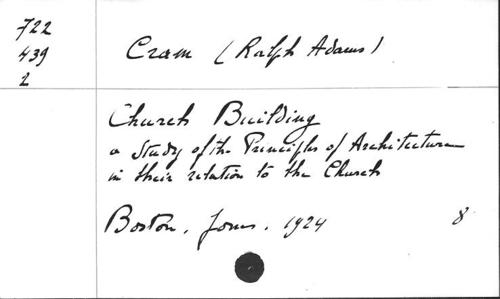 722
439
2
Cram (Ralph Adams)
Church Building
a study of the Principles of Architecture
in their relation to the Church
Boston, Jones, 1924 8